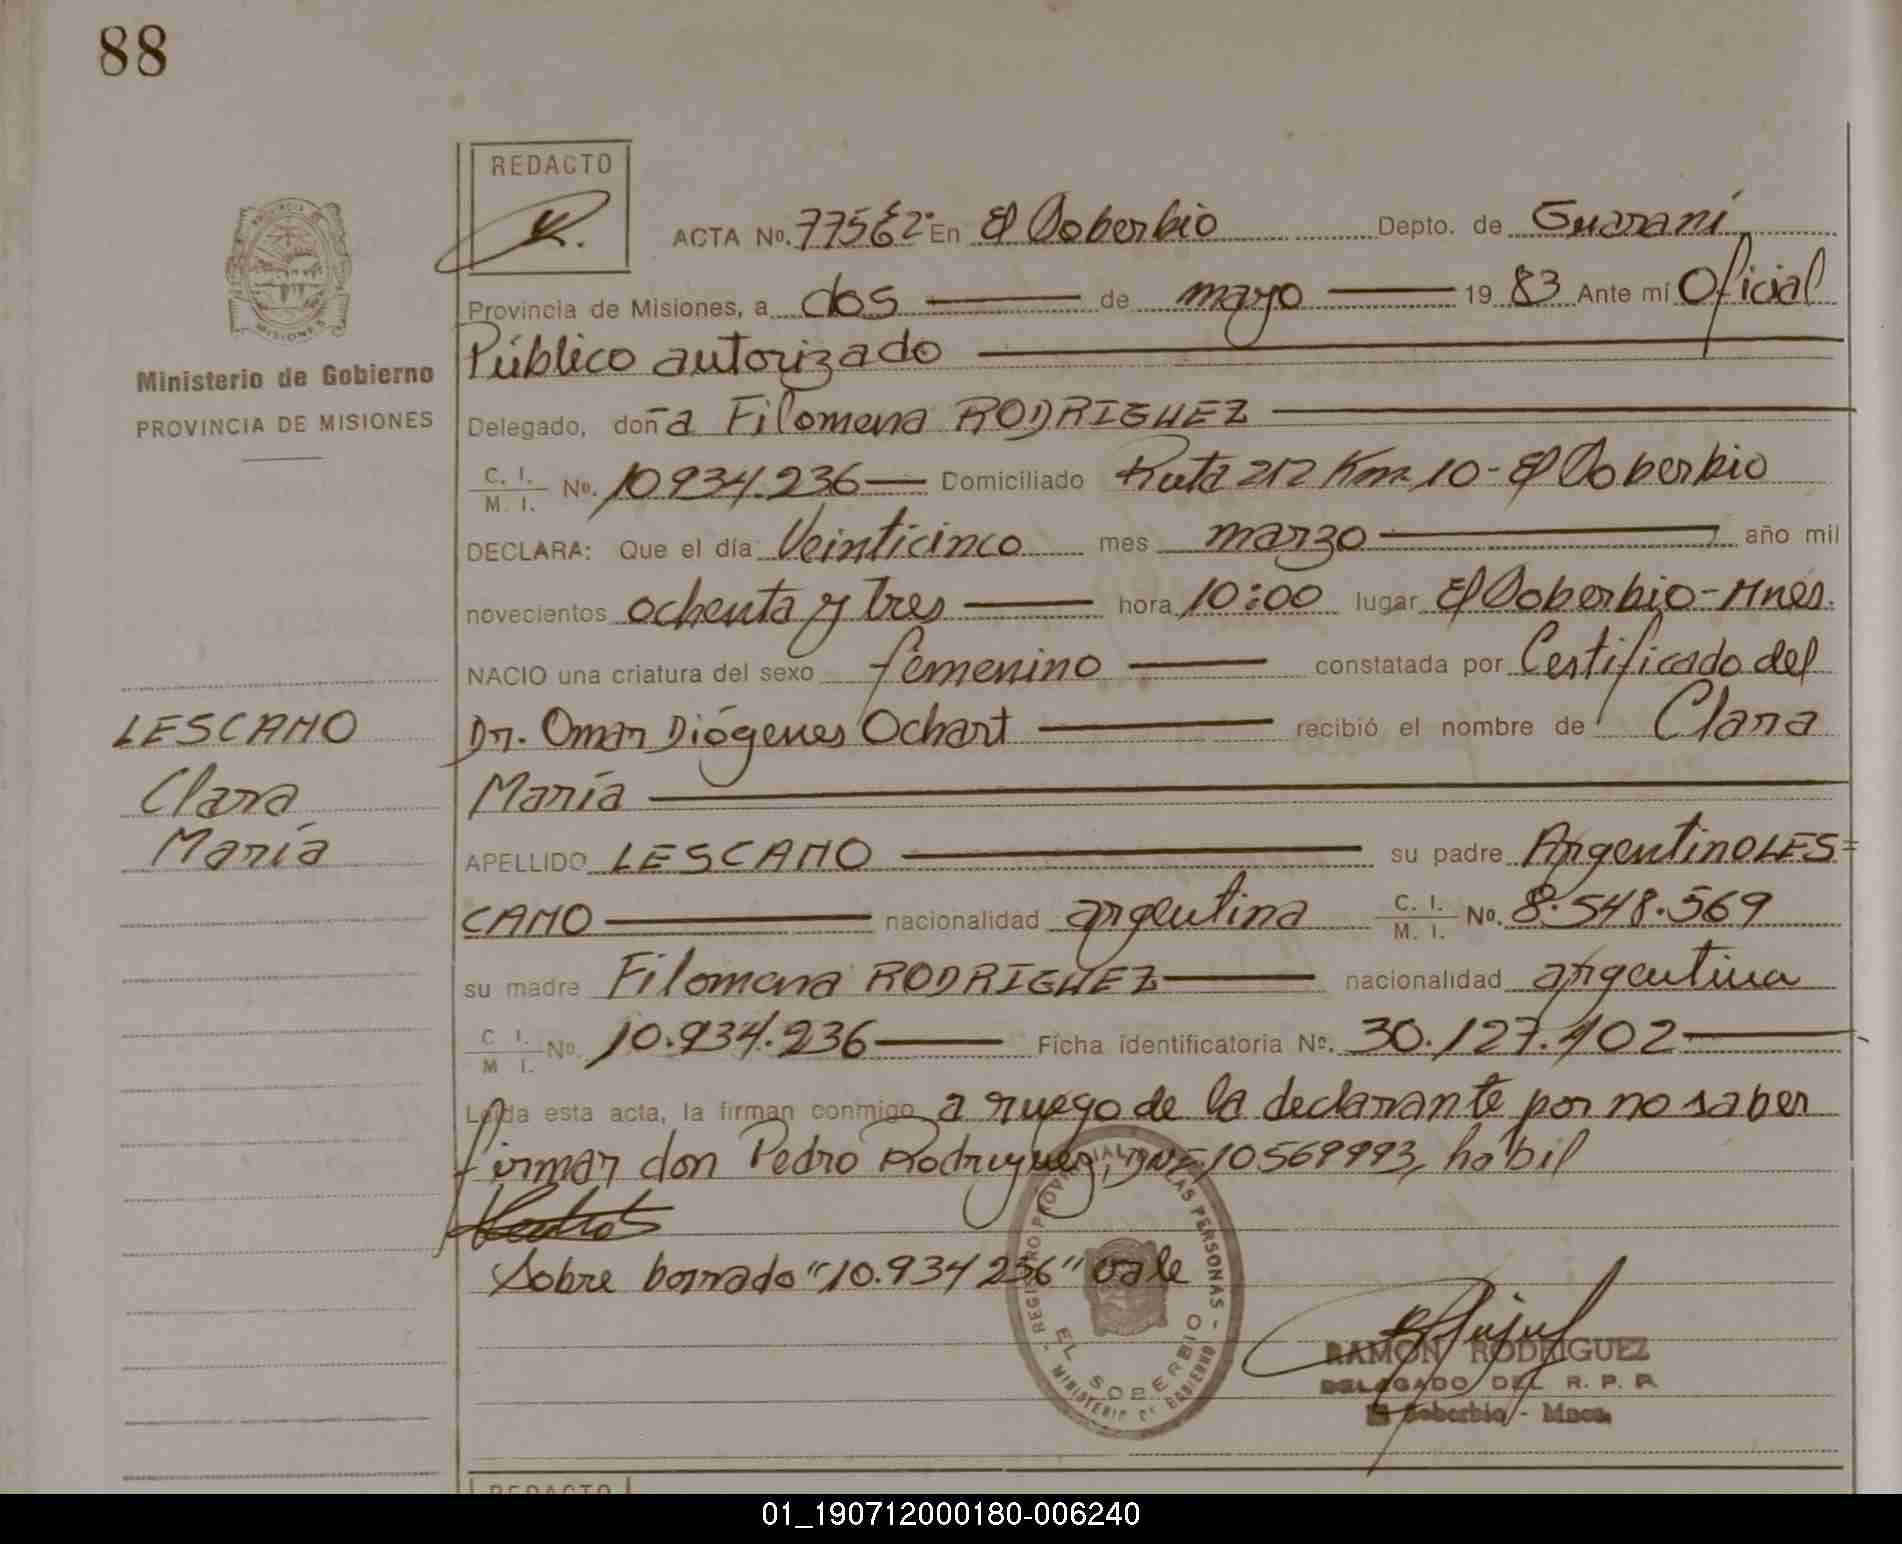 88
REDACTO
ACTA Nº. En El Soberbio Depto. de Guaraní
Provincia de Misiones, a dos de mayo 19 83 Ante mí Oficial
Público autorizado
Ministerio de Gobierno
PROVINCIA DE MISIONES
Delegado, doña Filomena RODRIGUEZ
C. I.
M. I. Nº. 10934.236 Domiciliado Ruta 212 Km. 10 - El Soberbio
DECLARA: Que el día Veinticinco mes marzo año mil
novecientos ochenta y tres hora 10:00 lugar El Soberbio - Mnes.
NACIO una criatura del sexo femenino constatada por Certificado del
Dr. Omar Diógenes Ochart recibió el nombre de Clara
María
LESCANO
Clara
María
APELLIDO LESCANO su padre Argentino LES=
CANO nacionalidad argentina C. I.
M. I. Nº. 8.548.569
su madre Filomena RODRIGUEZ nacionalidad argentina
C. I.
M. I. Nº. 10.934.236 Ficha identificatoria Nº. 30.127.402
Leída esta acta, la firman conmigo a ruego de la declarante por no saber
firmar don Pedro Rodriguez, 10569993, hábil
Sobre borrado "10.934236" vale
REGISTRO PROVINCIAL DE LAS PERSONAS
EL SOBERBIO
MINISTERIO DE GOBIERNO
RAMON RODRIGUEZ
DELEGADO DEL R. P. P.
El Soberbio - Mnes.
REDACTO
01_190712000180-006240